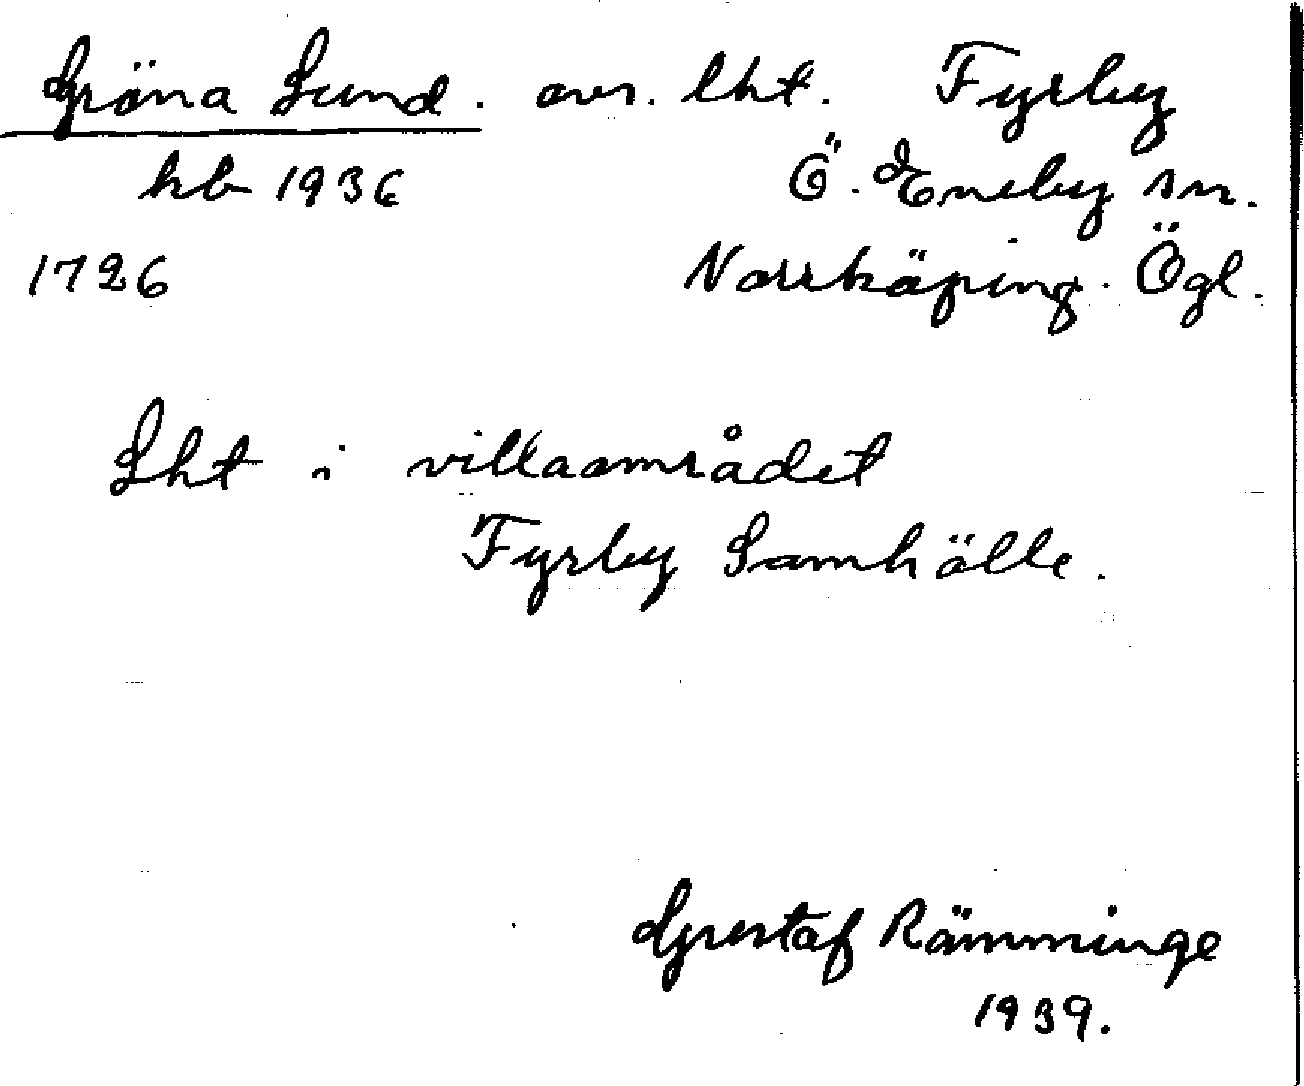 Gröna Lund. avs. lht. Fyrby
kb 1936 Ö. Eneby sn.
1726 Norrköping. Ögl.
Lht i villaområdet
Fyrby Samhälle.
Gustaf Rämminge
1939.